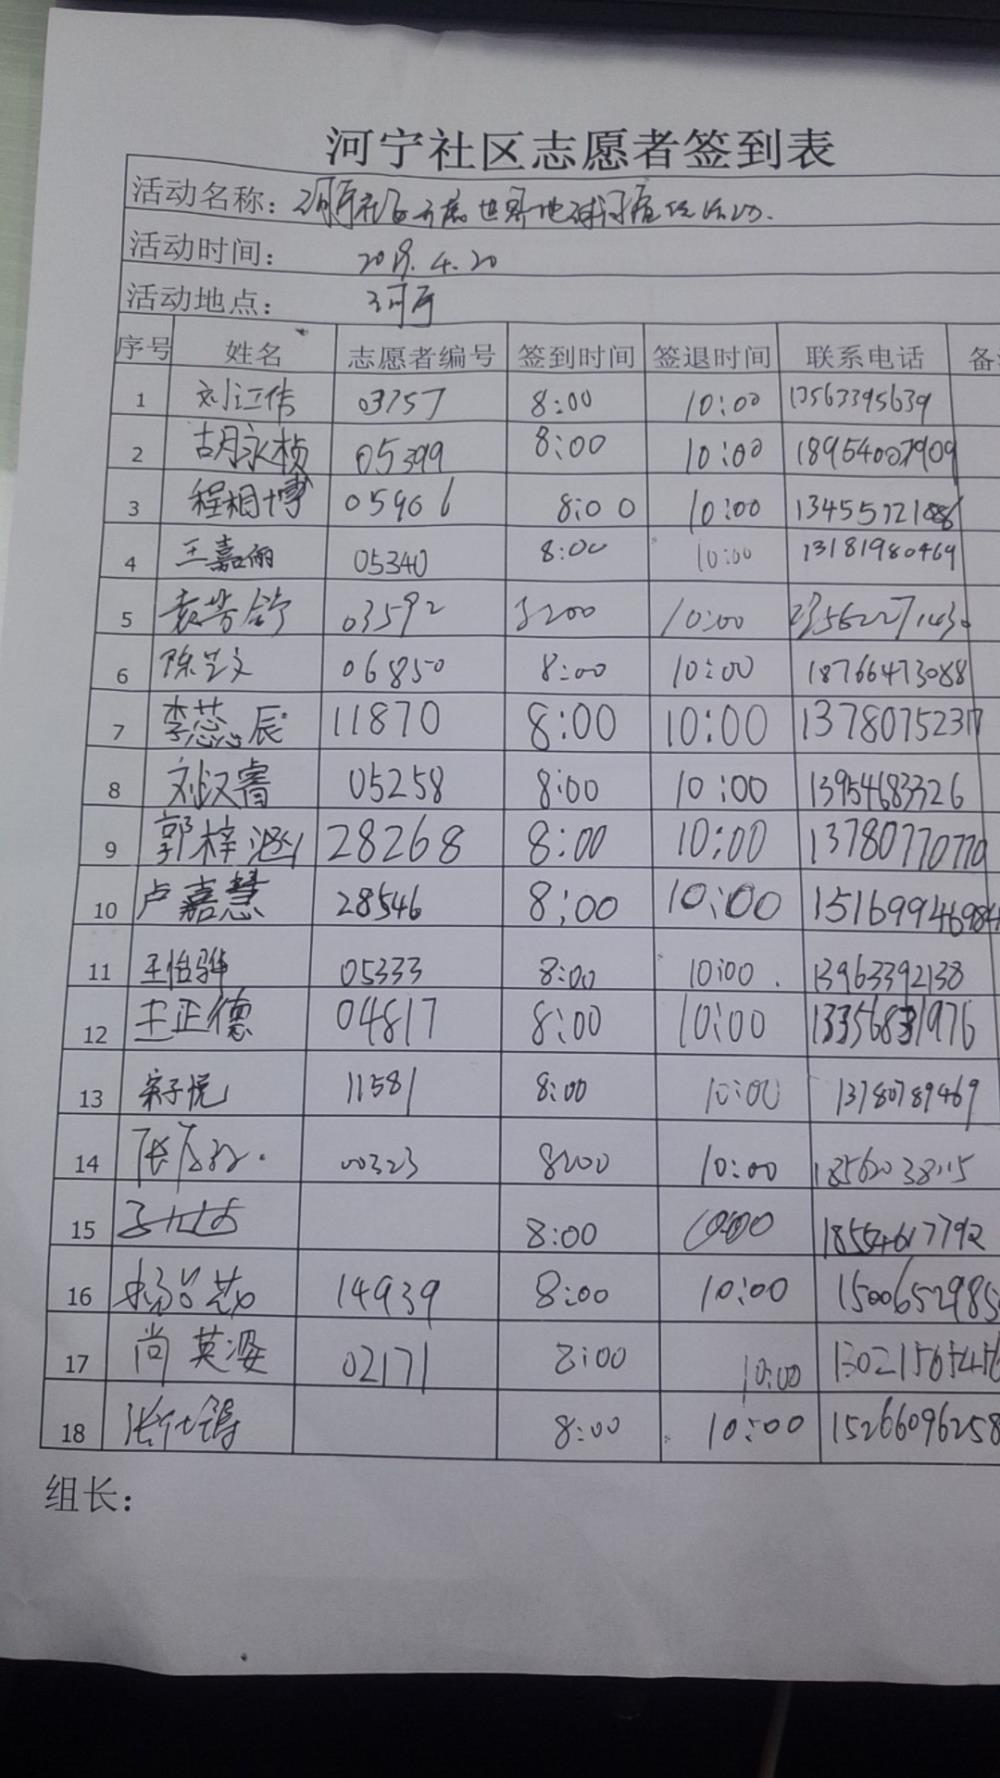 河宁社区志愿者签到表
活动名称：河宁社区开展世界地球日宣传活动.
活动时间： 2019.4.20
活动地点： 河宁
序号 姓名 志愿者编号 签到时间 签退时间 联系电话
1 刘江伟 03757 8:00 10:00 13563395639
2 胡永桢 05399 8:00 10:00 18954007909
3 程相博 05906 8:00 10:00 13455721886
4 王嘉丽 05340 8:00 10:00 13181980469
5 袁芳舒 03592 8:00 10:00
6 陈艺文 06850 8:00 10:00 18766473088
7 李蕊辰 11870 8:00 10:00 13780752317
8 刘汉睿 05258 8:00 10:00 13954683326
9 郭梓涵 28268 8:00 10:00 13780770770
10 卢嘉慧 28546 8:00 10:00 15169946984
11 王怡骅 05333 8:00 10:00 13963392138
12 王正德 04817 8:00 10:00 13356831976
13 宋子悦 11581 8:00 10:00 13780789469
14 00323 8:00 10:00
15 8:00 10:00 18554617792
16 14939 8:00 10:00 1500652985
17 尚英姿 02171 8:00 10:00 13021565456
18 8:00 10:00 15266096258
组长：